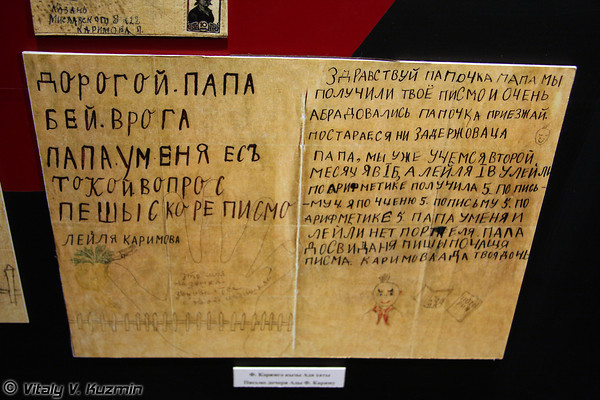 КАЗАНЬ
МИСЛАВСКОГО 8 кв 22
КАРИМОВА Л.
ДОРОГОЙ.ПАПА
БЕЙ.ВРОГА
ПАПА.УМЕНЯ ЕСЪ
ТОКОЙ ВОПРОС
ПЕШЫ СКОРЕ ПИСМО
ЛЕЙЛЯ КАРИМОВА
ЗДРАВСТВУЙ ПАПОЧКА ПАПА МЫ
ПОЛУЧИЛИ ТВОЁ ПИСМО И ОЧЕНЬ
АБРАДОВАЛИСЬ ПАПОЧКА ПРИЕЗЖАЙ.
ПОСТАРАЕСЯ НИ ЗАДЕРЖОВАЦА
ПАПА, МЫ УЖЕ УЧЕМСЯ ВТОРОЙ
МЕСЯЦ Я В IБ, А ЛЕЙЛЯ I В У ЛЕЙЛИ
ПО АРИФМЕТИКЕ ПОЛУЧИЛА 5. ПО ПИСЬ-
МУ 4. Я ПО ЧИЕНЮ 5. ПО ПИСЬМУ 5. ПО
АРИФМЕТИКЕ 5. ПАПА УМЕНЯ И
ЛЕЙЛИ НЕТ ПОРТФЕЛЯ. ПАПА
ДОСВИДАНЯ ПИШЫ ПОЧАЩА
ПИСМА. КАРИМОВА АДА ТВОЯ ДОЧЬ
Ф. Кәримгә кызы Ада хаты
Письмо дочери Ады Ф. Кариму
© Vitaly V. Kuzmin